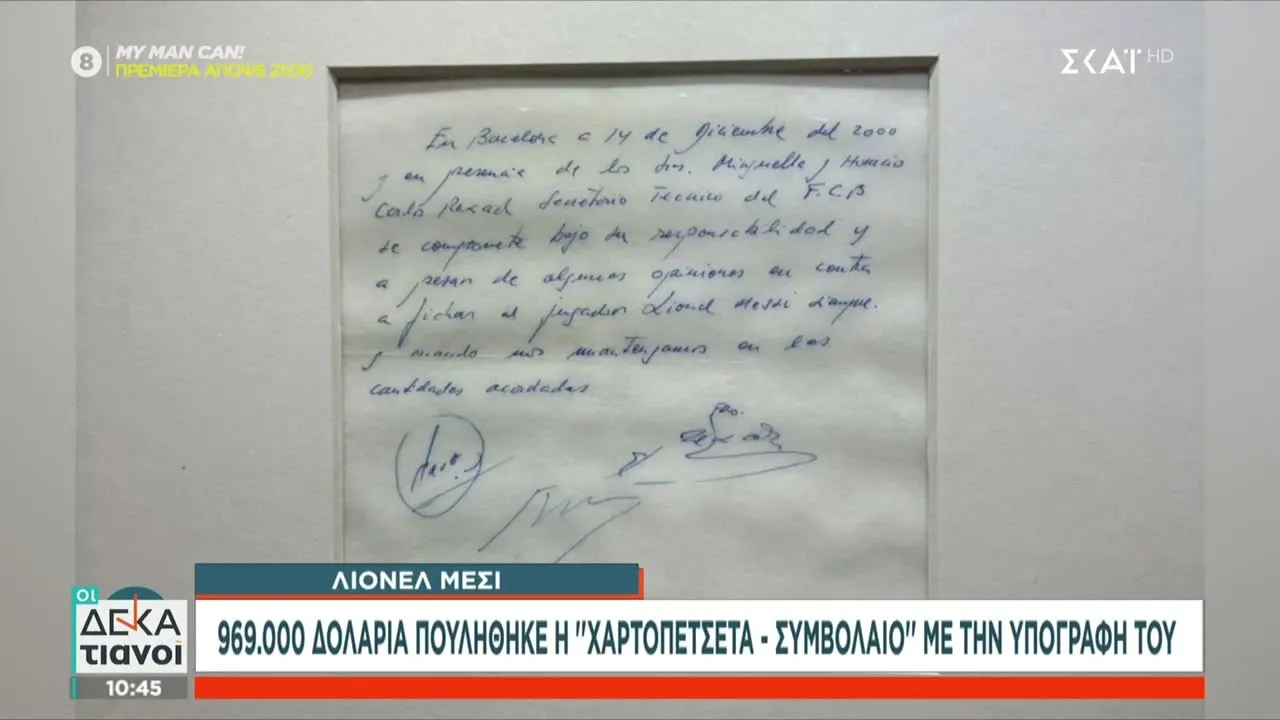 8 MY MAN CAN!
ΠΡΕΜΙΕΡΑ ΑΠΟΨΕ 21:00
ΣΚΑΪ HD
En Barcelona a 14 de Diciembre del 2000
y en presencia de los Srs. Minguella y Horacio
Carlos Rexach Secretario Tecnico del F.C.B
se compromete bajo su responsabilidad y
a pesar de algunas opiniones en contra
a fichar al jugador Lionel Messi siempre
y cuando nos mantengamos en las
cantidades acordadas
ΛΙΟΝΕΛ ΜΕΣΙ
969.000 ΔΟΛΑΡΙΑ ΠΟΥΛΗΘΗΚΕ Η "ΧΑΡΤΟΠΕΤΣΕΤΑ - ΣΥΜΒΟΛΑΙΟ" ΜΕ ΤΗΝ ΥΠΟΓΡΑΦΗ ΤΟΥ
ΟΙ
ΔΕΚΑ
τιανοί
10:45